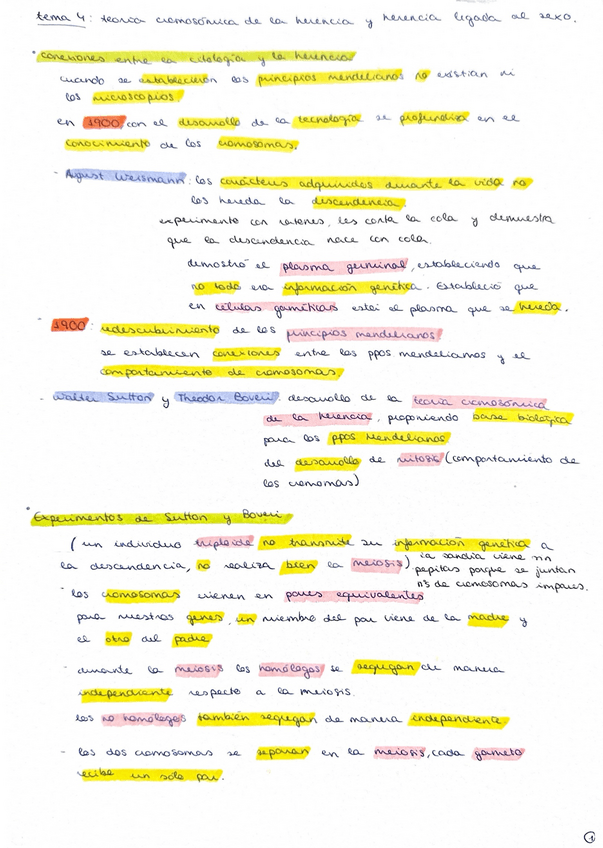 tema 4: teoría cromosómica de la herencia y herencia ligada al sexo.
* conexiones entre la citología y la herencia
cuando se establecieron los principios mendelianos no existían ni
los microscopios
en 1900, con el desarrollo de la tecnología se profundiza en el
conocimiento de los cromosomas.
- August Weismann: los caracteres adquiridos durante la vida no
los hereda la descendencia.
experimento con ratones, les corta la cola y demuestra
que la descendencia nace con cola.
demostró el plasma germinal, estableciendo que
no todo era información genética. Estableció que
en células gaméticas está el plasma que se hereda.
- 1900: redescubrimiento de los principios mendelianos
se establecen conexiones entre los ppos mendelianos y el
comportamiento de cromosomas
- Walter Sutton y Theodor Boveri: desarrollo de la teoría cromosómica
de la herencia, proponiendo base biológica
para los ppos Mendelianos
del desarrollo de mitosis (comportamiento de
los cromomas)
* Experimentos de Sutton y Boveri
(un individuo triploide no transmite su información genética a
la descendencia, no realiza bien la meiosis) la sandía viene sin
pepitas porque se juntan
nºs de cromosomas impares.
- los cromosomas vienen en pares equivalentes
para nuestros genes, un miembro del par viene de la madre y
el otro del padre
- durante la meiosis los homólogos se segregan de manera
independiente respecto a la meiosis.
los no homólogos también segregan de manera independiente
- los dos cromosomas se separan en la meiosis, cada gameto
recibe un sólo par.
1